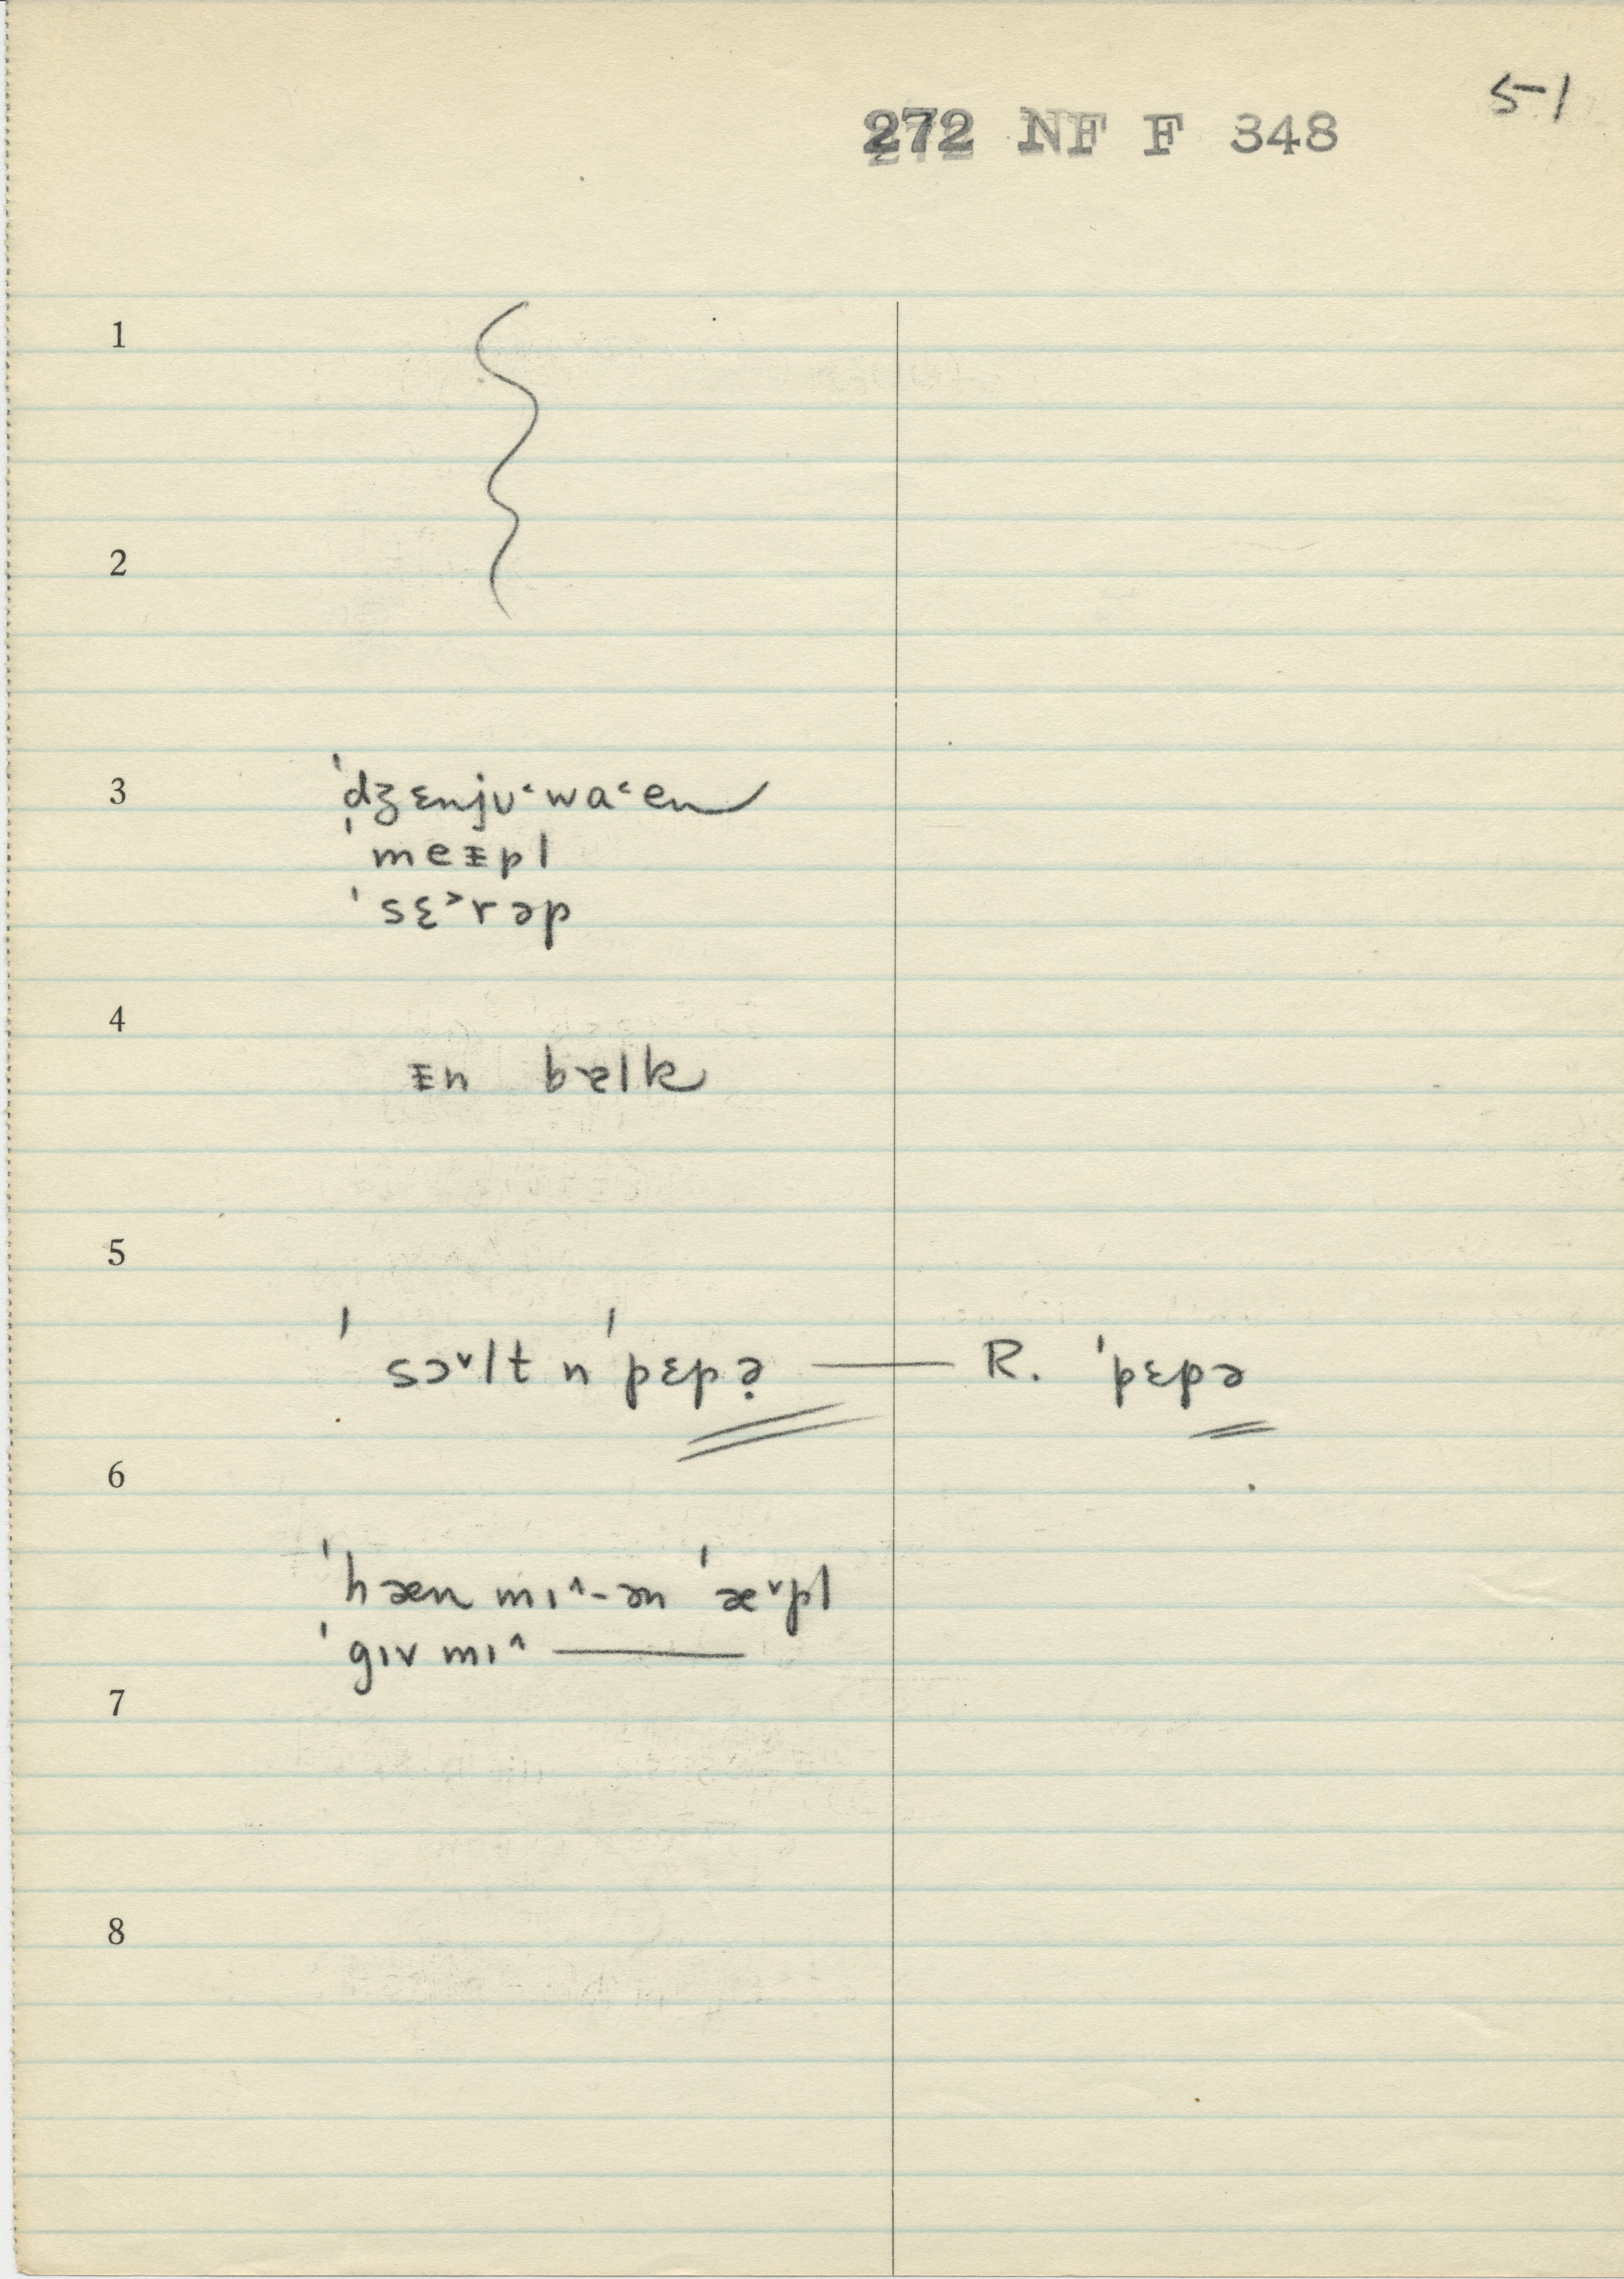 5-1
272 NF F 348
1
2
3
ˈdʒɛnjʊ˂wa˂en
ˈmeᵻpl
ˈsɛ˃rəp
4
ᵻn bɐlk
5
ˈsɔ˅lt n ˈpɛpə̣ — R. ˈpɛpə
6
ˈhæn mɪ˄-ən ˈæ˅pl
ˈgɪv mɪ˄ —
7
8